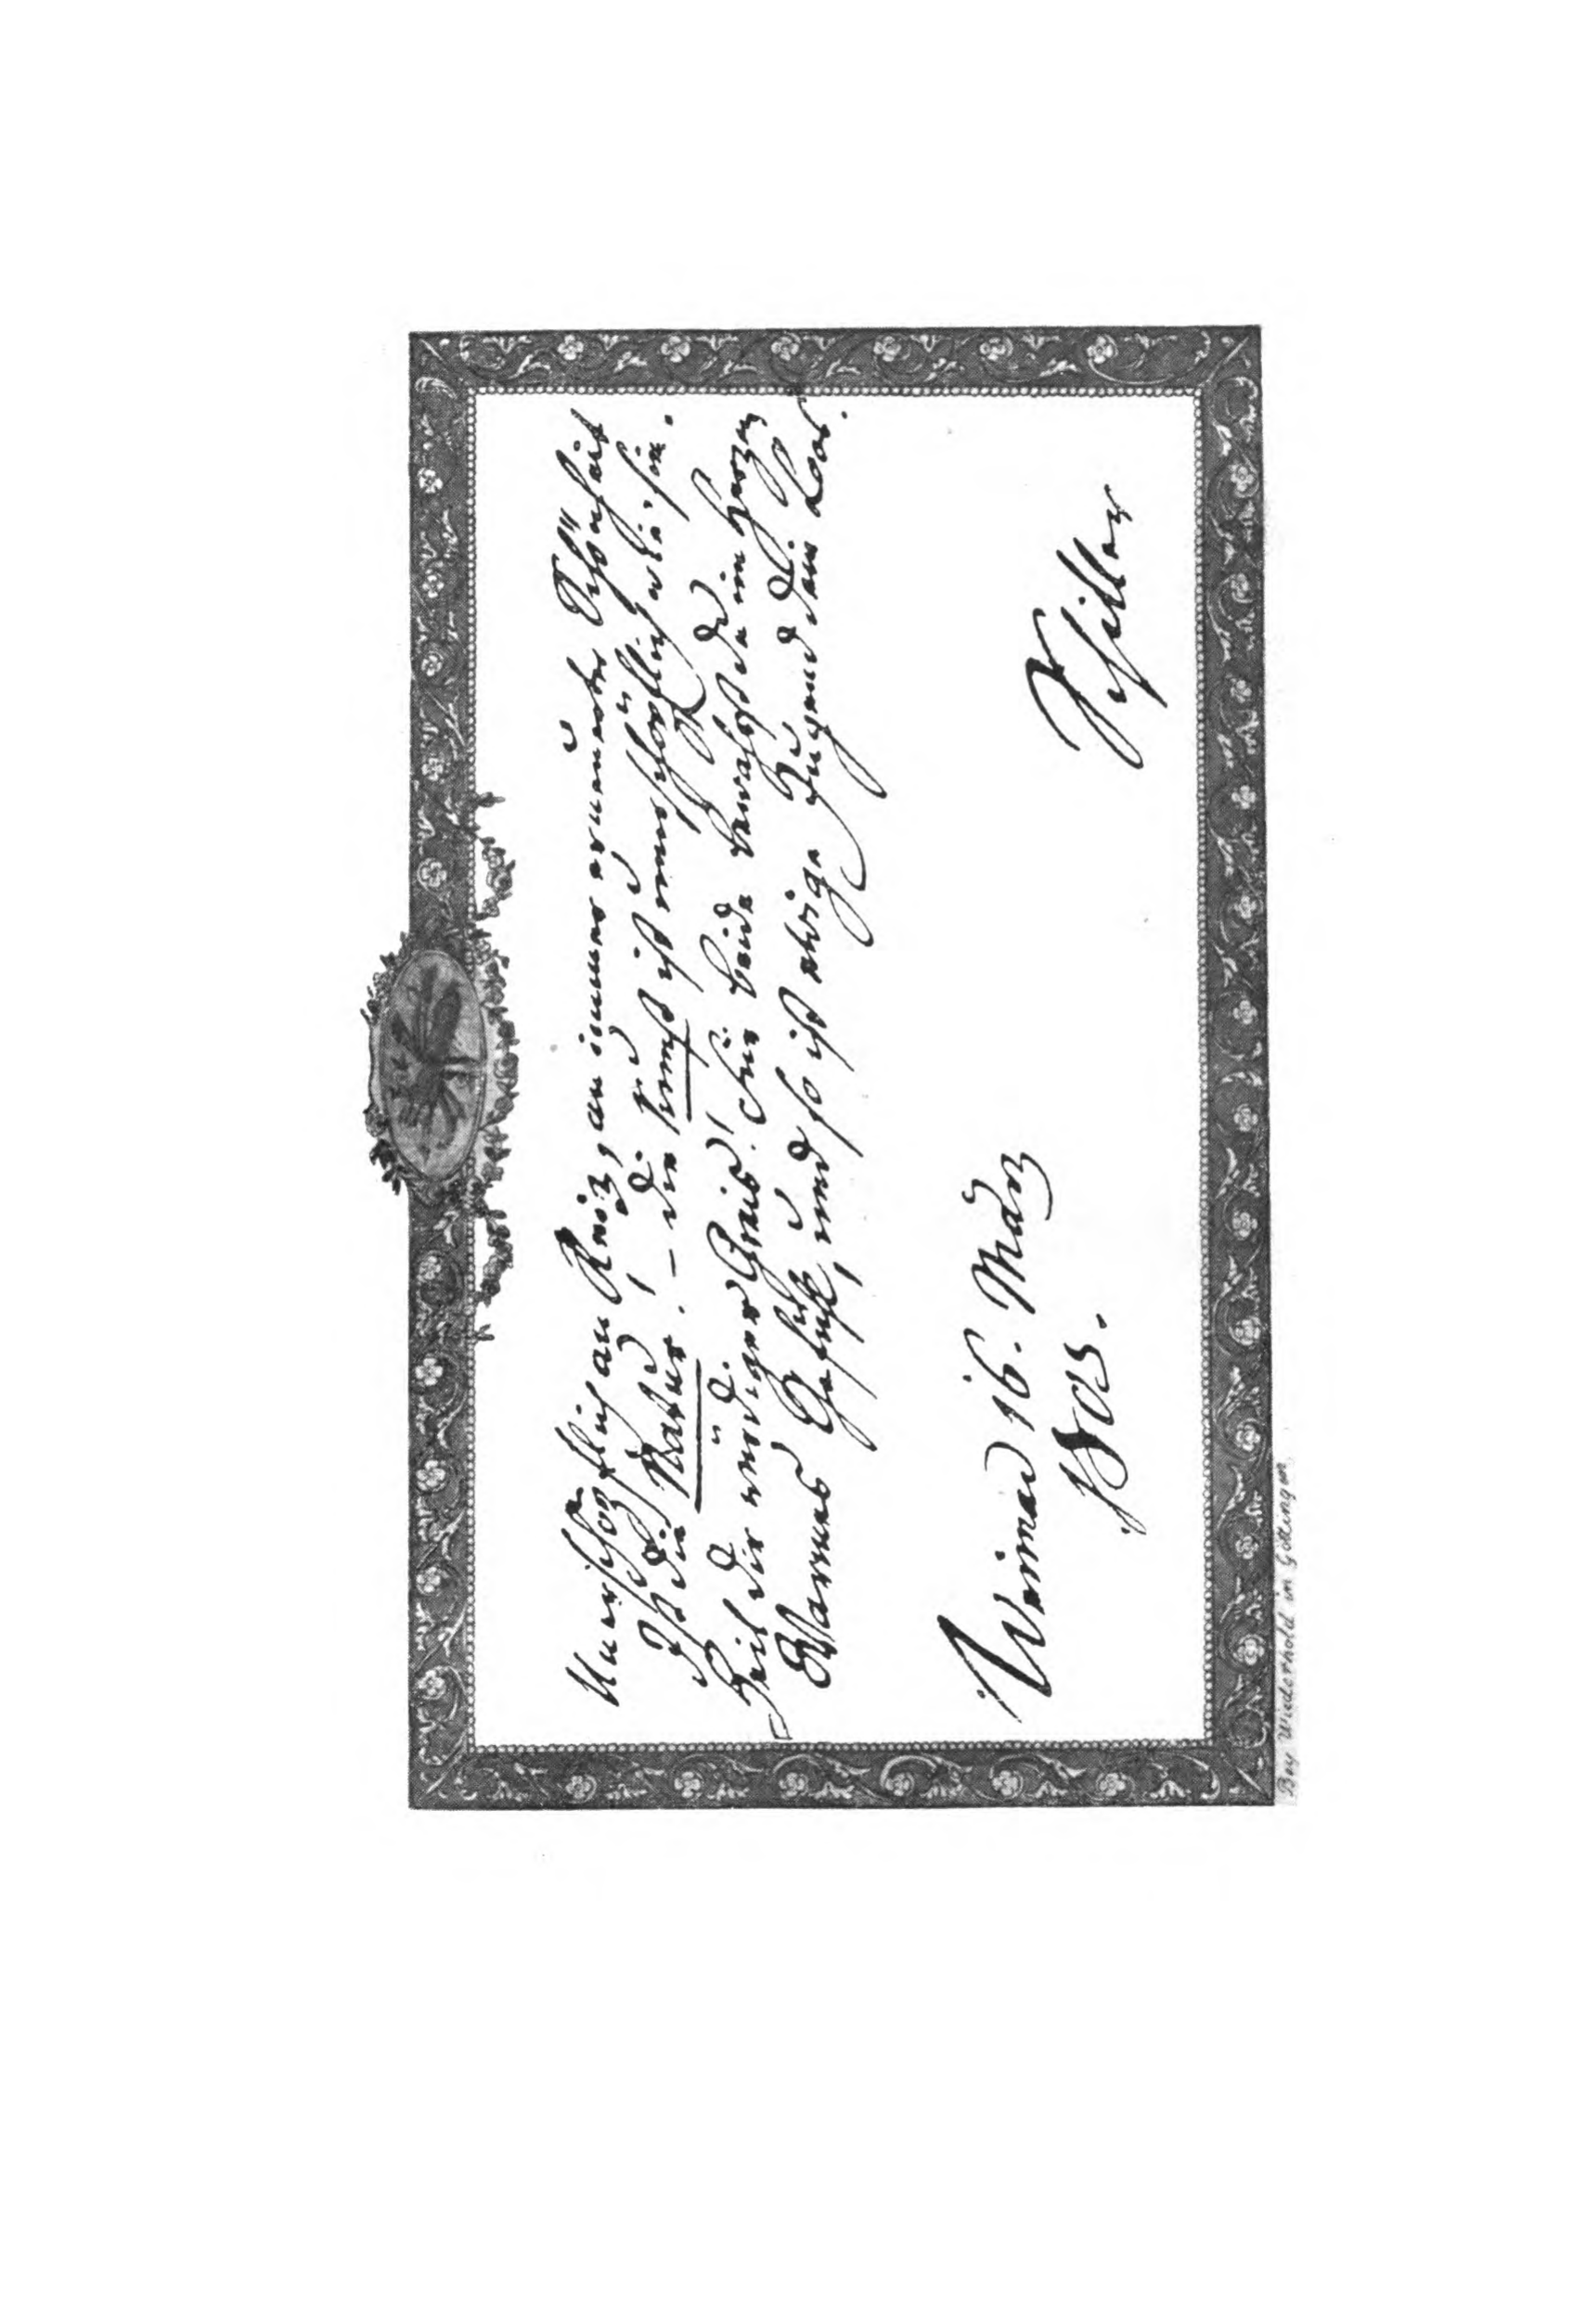 Unerschöpflich an Reiz, an immer erneuerter Schönheit
Ist die Natur! – die Kunst ist unerschöpflich wie sie.
Heil dir würdiger Greis! Für beide bewahrst du im Herzen
Warmes Gefühl, und so ist ewige Jugend dein Loos.
Weimar 16. März
1805.
Schiller
Bey Wiederhold in Göttingen